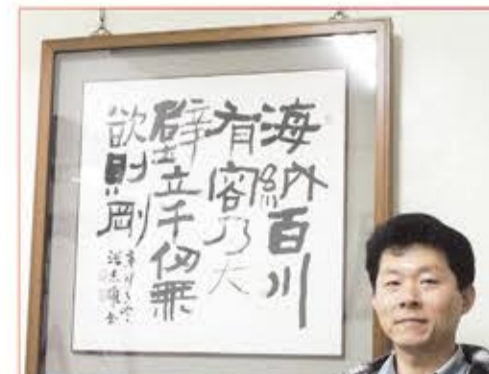 海納百川
有容乃大
壁立千仞無
欲則剛